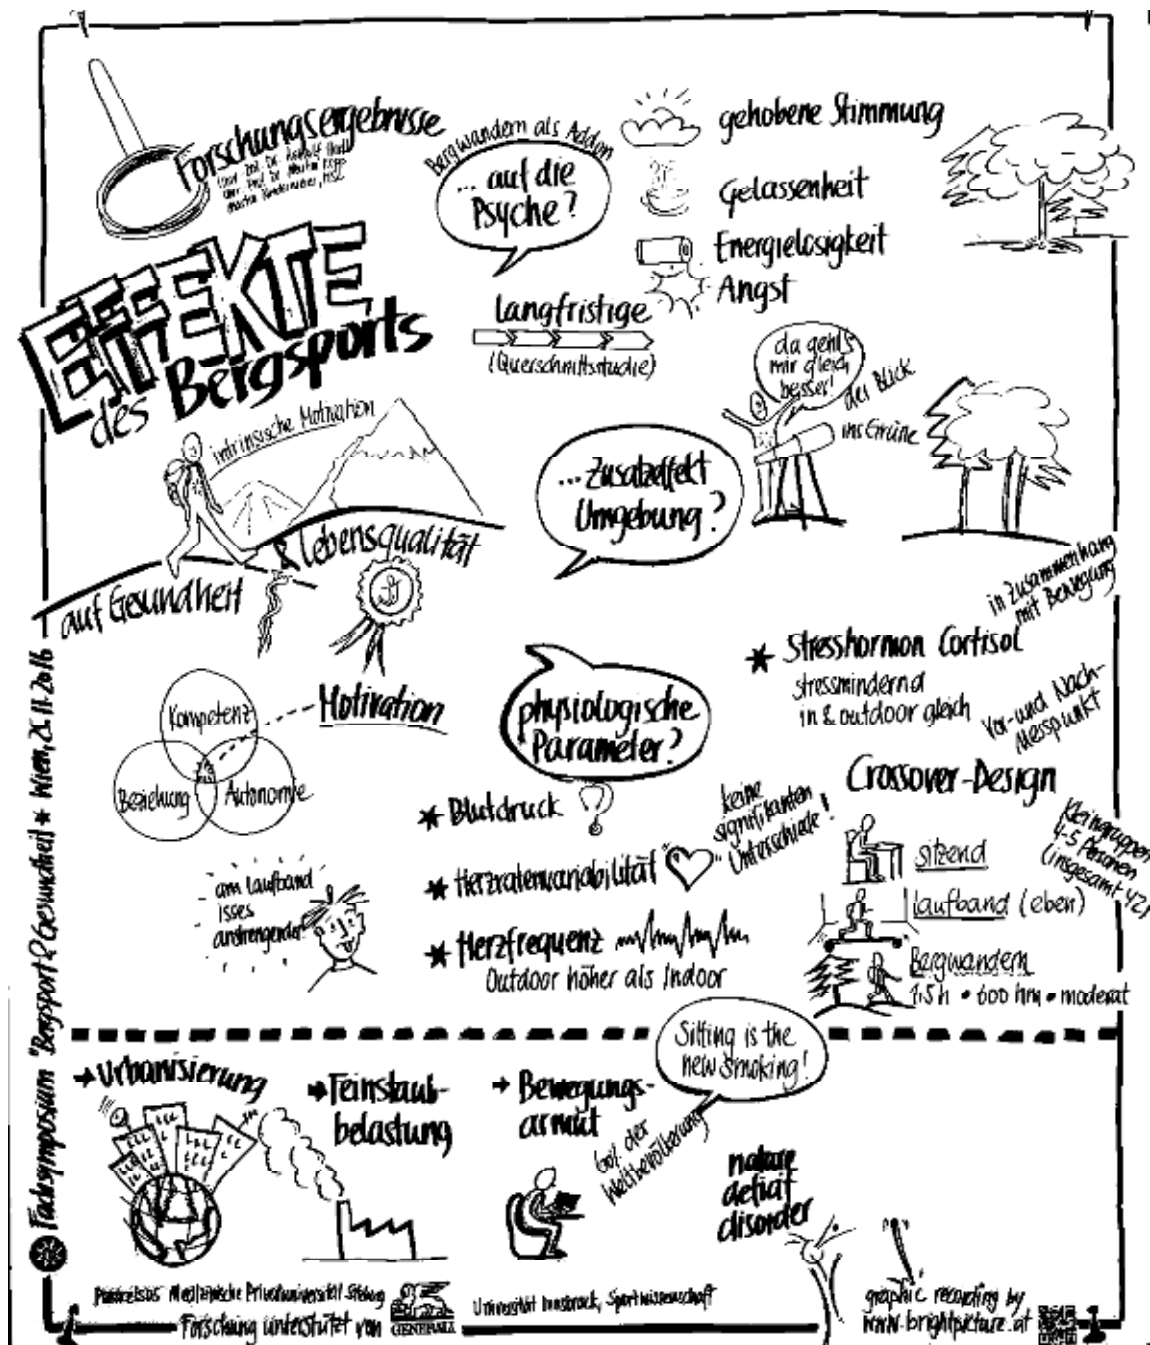 Forschungsergebnisse
EFFEKTE
des Bergsports
Bergwandern als Addon
... auf die
Psyche?
gehobene Stimmung
Gelassenheit
Energielosigkeit
Angst
langfristige
(Querschnittsstudie)
intrinsische Motivation
auf Gesundheit
& Lebensqualität
... Zusatzeffekt
Umgebung?
da geht's
mir gleich
besser!
der Blick
ins Grüne
Motivation
Kompetenz
Beziehung
Autonomie
physiologische
Parameter?
* Blutdruck
* Herzratenvariabilität
keine
signifikanten
Unterschiede!
* Herzfrequenz
Outdoor höher als Indoor
am Laufband
isses
anstrengender!
* Stresshormon Cortisol
stressmindernd
in & outdoor gleich
in Zusammenhang
mit Bewegung
Vor- und Nach-
Messpunkt
Crossover-Design
sitzend
Laufband (eben)
Bergwandern
1.5h • 600 hm • moderat
Kleingruppen
4-5 Personen
(insgesamt 42)
Urbanisierung
Feinstaub-
belastung
Bewegungs-
armut
60% der
Weltbevölkerung
Sitting is the
new Smoking!
nature
deficit
disorder
Fachsymposium "Bergsport & Gesundheit" * Wien,
Paracelsus Medizinische Privatuniversität Salzburg
Universität Innsbruck, Sportwissenschaft
Forschung unterstützt von
GENERALI
graphic recording by
www.brightpicture.at